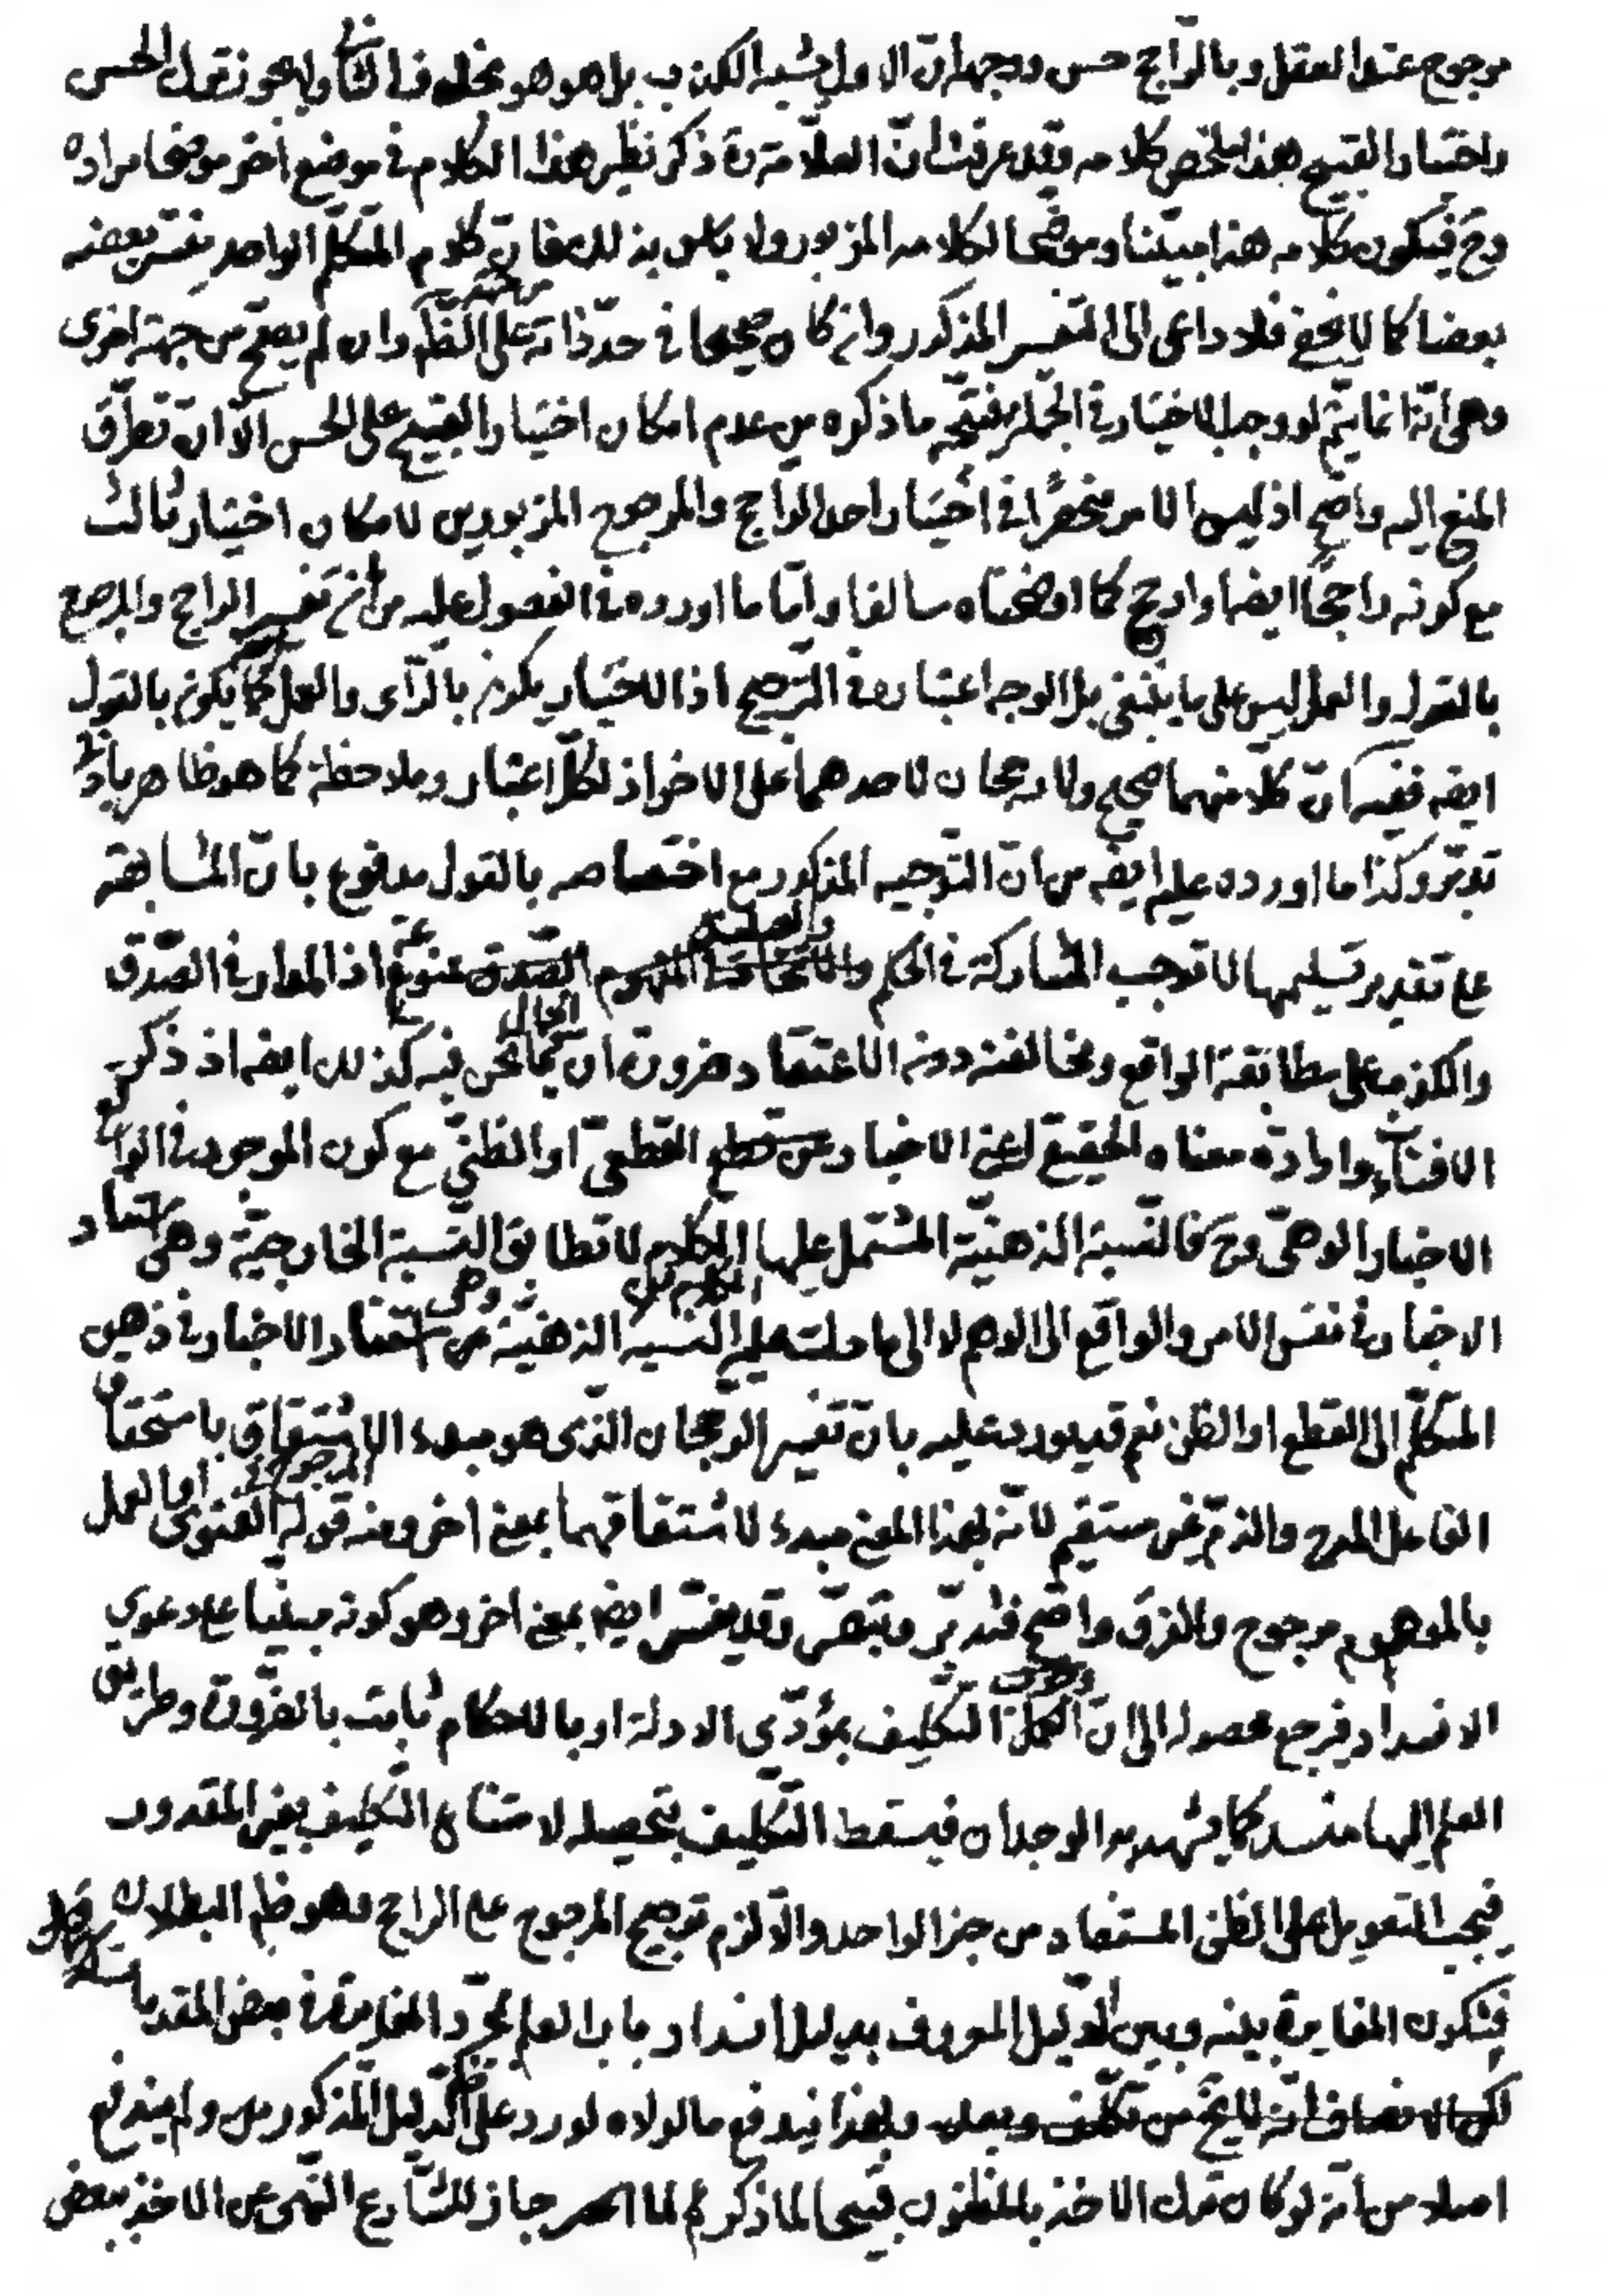 مرجوح عند العقل وبالراجح حسن ووجهه ان الاول يشبه الكذب بل هو هو بخلاف الثانى ولا يجوز ترك الحسن
واختيار القبيح هذا ملخص كلامه وقد عرفت ان العلامة ره ذكر نظير هذا الكلام فى موضع اخر موضحا مراده
وح فيكون كلامه هذا مبينا وموضحا لكلامه المزبور ولا بأس بذلك فان كلام المتكلم الواحد يفسر بعضه
بعضا كما لا يخفى فلا داعى الى التفسير المذكور وان كان صحيحا فى حد ذاته على الظاهر وان لم يصح من جهة اخرى
وهى انه انما يتم لو وجب الاختيار فى الجملة فيتجه ما ذكره من عدم امكان اختيار القبيح على الحسن الا ان تطرق
المنع اليه واضح اذ ليس الامر منحصرا فى اختيار احد الراجح والمرجوح المزبورين لامكان اختيار ثالث
مع كونه راجحا ايضا وارجح كما اوضحناه سالفا واما ما اورده فى الفصول عليه من ان تفسير الراجح والمرجوح
بالقول والعمل ليس على ما ينبغى بل الوجه اعتباره فى الترجيح اذ الاختيار يكون بالرأى والعمل كما يكون بالقول
ايضه ففيه ان كلا منهما صحيح ولا رجحان لاحدهما على الاخر اذ لكل اعتبار وملاحظة كما هو ظاهر بادنى
تدبر وكذا ما اورده عليه ايضه من ان التوجيه المذكور مع اختصاصه بالقول مدفوع بان المشابهة
على تقدير تسليمها لا توجب المشاركة فى الحكم والعينية ممنوعة اذ المدار فى الصدق
والكذب على مطابقة الواقع ومخالفته دون الاعتقاد ضرورة ان الحال فيما نحن فيه كذلك ايضه اذ ذكر
الافتاء وارادة معناه الحقيقى اعنى الاخبار القطعى او الظنى مع كون الموجود فى الواقع
الاخبار الوهمى وح فالنسبة الذهنية المشتمل عليها الكلام لا تطابق النسبة الخارجية وهى استناد
الاخبار فى نفس الامر والواقع الى الوهم لا الى ما دلت عليه النسبة الذهنية وهى استناد الاخبار فى ذهن
المتكلم الى القطع او الظن نعم قد يورد عليه بان تفسير الرجحان الذى هو مبدء الاشتقاق باستحقاق
الفاعل المدح والذم غير مستقيم لانه بهذا المعنى مبدء لاشتقاقهما بمعنى اخر ومنه قوله الفتوى او العمل
بالموهوم مرجوح والفرق واضح فتدبر وتبصر وقد يفسر ايضه بمعنى اخر وهو كونه مبنيا على دعوى
الانسداد فيرجع محصوله الى ان التكليف بمؤدى الادلة او بالاحكام ثابت بالضرورة وطريق
العلم اليها منسد كما يشهد به الوجدان فيسقط التكليف بتحصيله لامتناع التكليف بغير المقدور
فيجب التعويل على الظن المستفاد من خبر الواحد والا لزم ترجيح المرجوح على الراجح وهو ظاهر البطلان
فتكون المغايرة بينه وبين الدليل المعروف بدليل انسداد باب العلم لمجرد المغايرة فى بعض المقدمات
وبهذا يندفع ما لولاه لورد على الدليل المذكور ولم يندفع
اصلا من انه لو كان ترك الاخذ بالمظنون قبيحا لما ذكر لما جاز للشارع النهى عن الاخذ ببعض